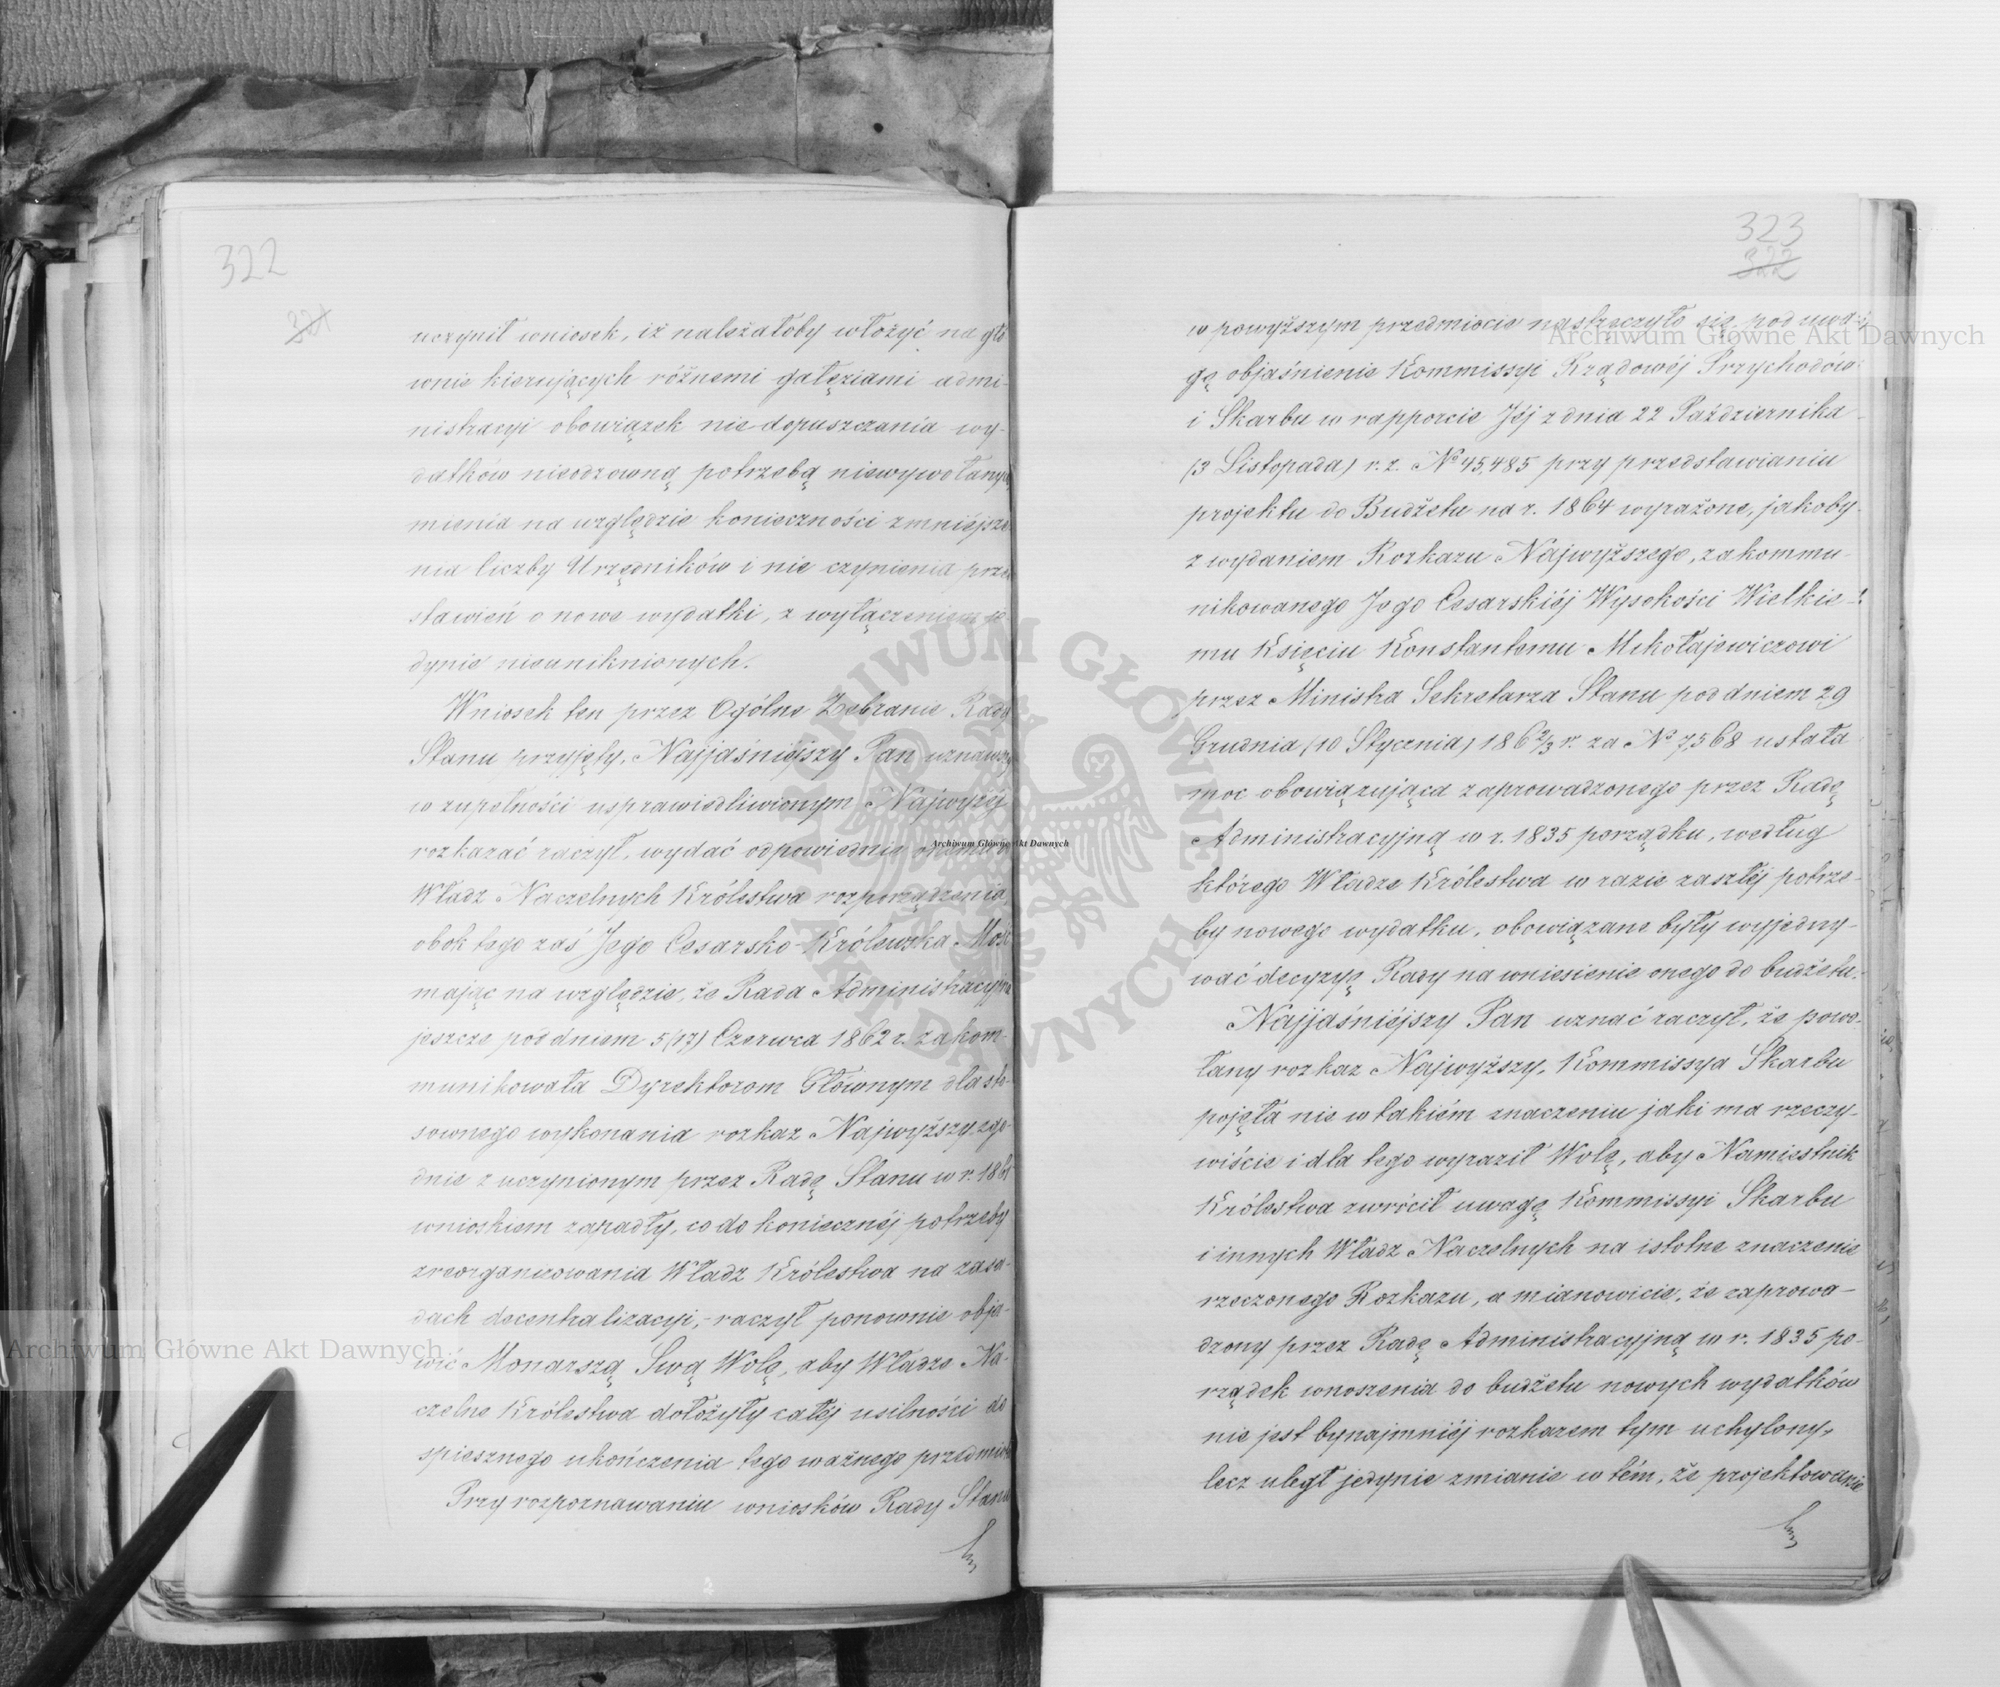 322
321
uczynił wniosek, iż należałoby włożyć na głó
wnie kierujących różnemi gałęziami admi-
nistracyi obowiązek nie dopuszczania wy-
datków nieodzowną potrzebą niewywołanych
mienia na względzie konieczności zmniejsze
nia liczby Urzędników i nie czynienia prze
stawień o nowe wydatki, z wyłączeniem je
dynie nieuniknionych.
Wniosek ten przez Ogólne Zebranie Rady
Stanu przyjęty, Najjaśniejszy Pan uznawszy
w zupełności usprawiedliwionym Najwyżéj
rozkazać raczył, wydać odpowiednie
Władz Naczelnych Królestwa rozporządzenia,
obok tego zaś Jego Cesarsko-Królewska Mość
mając na względzie, że Rada Administracyjna
jeszcze pod dniem 5/17) Czerwca 1862 r. zakom-
munikowała Dyrektorom Głównym dla sto-
sownego wykonania rozkaz Najwyższy, zgo-
dnie z uczynionym przez Radę Stanu w r. 1861
wnioskiem zapadły, co do koniecznéj potrzeby
zreorganizowania Władz Królestwa na zasa-
dach decentralizacyi,- raczył ponownie obja-
wić Monarszą Swą Wolę, aby Władze Na-
czelne Królestwa dołożyły całéj usilności do
spiesznego ukończenia tego ważnego przedmiotu
Przy rozpoznawaniu wniosków Rady Stanu
323
322
w powyższym przedmiocie nastręczyło się pod uwa-
gę objaśnienie Kommissyi Rządowéj Przychodów
i Skarbu w rapporcie Jéj z dnia 22 Października
(3 Listopada) r.z. No 45,485 przy przedstawianiu
projektu do Budżetu na r. 1864 wyrażone, jakoby
z wydaniem Rozkazu Najwyższego, zakommu-
nikowanego Jego Cesarskiéj Wysokości Wielkie-
mu Księciu Konstantemu Mikołajewiczowi
przez Ministra Sekretarza Stanu pod dniem 29
Grudnia (10 Stycznia) 186 2/3 r. za No 7,568 ustała
moc obowiązująca zaprowadzonego przez Radę
Administracyjną w r. 1835 porządku, według
którego Władze Królestwa w razie zaszłéj potrze-
by nowego wydatku, obowiązane były wyjedny-
wać decyzyę Rady na wniesienie onego do budżetu.
Najjaśniéjszy Pan uznać raczył, że powo-
łany rozkaz Najwyższy, Kommissya Skarbu
pojęła nie w takiém znaczeniu jaki ma rzeczy-
wiście i dla tego wyraził Wolę, aby Namiestnik
Królestwa zwrócił uwagę Kommissyi Skarbu
i innych Władz Naczelnych na istotne znaczenie
rzeczonego Rozkazu, a mianowicie, że zaprowa-
dzony przez Radę Administracyjną w r. 1835 po-
rządek wnoszenia do budżetu nowych wydatków
nie jest bynajmniéj rozkazem tym uchylony,
lecz uległ jedynie zmianie w tém, że projektowanie
Archiwum Główne Akt Dawnych
Archiwum Główne Akt Dawnych
Archiwum Główne Akt Dawnych
ARCHIWUM GŁÓWNE AKT DAWNYCH